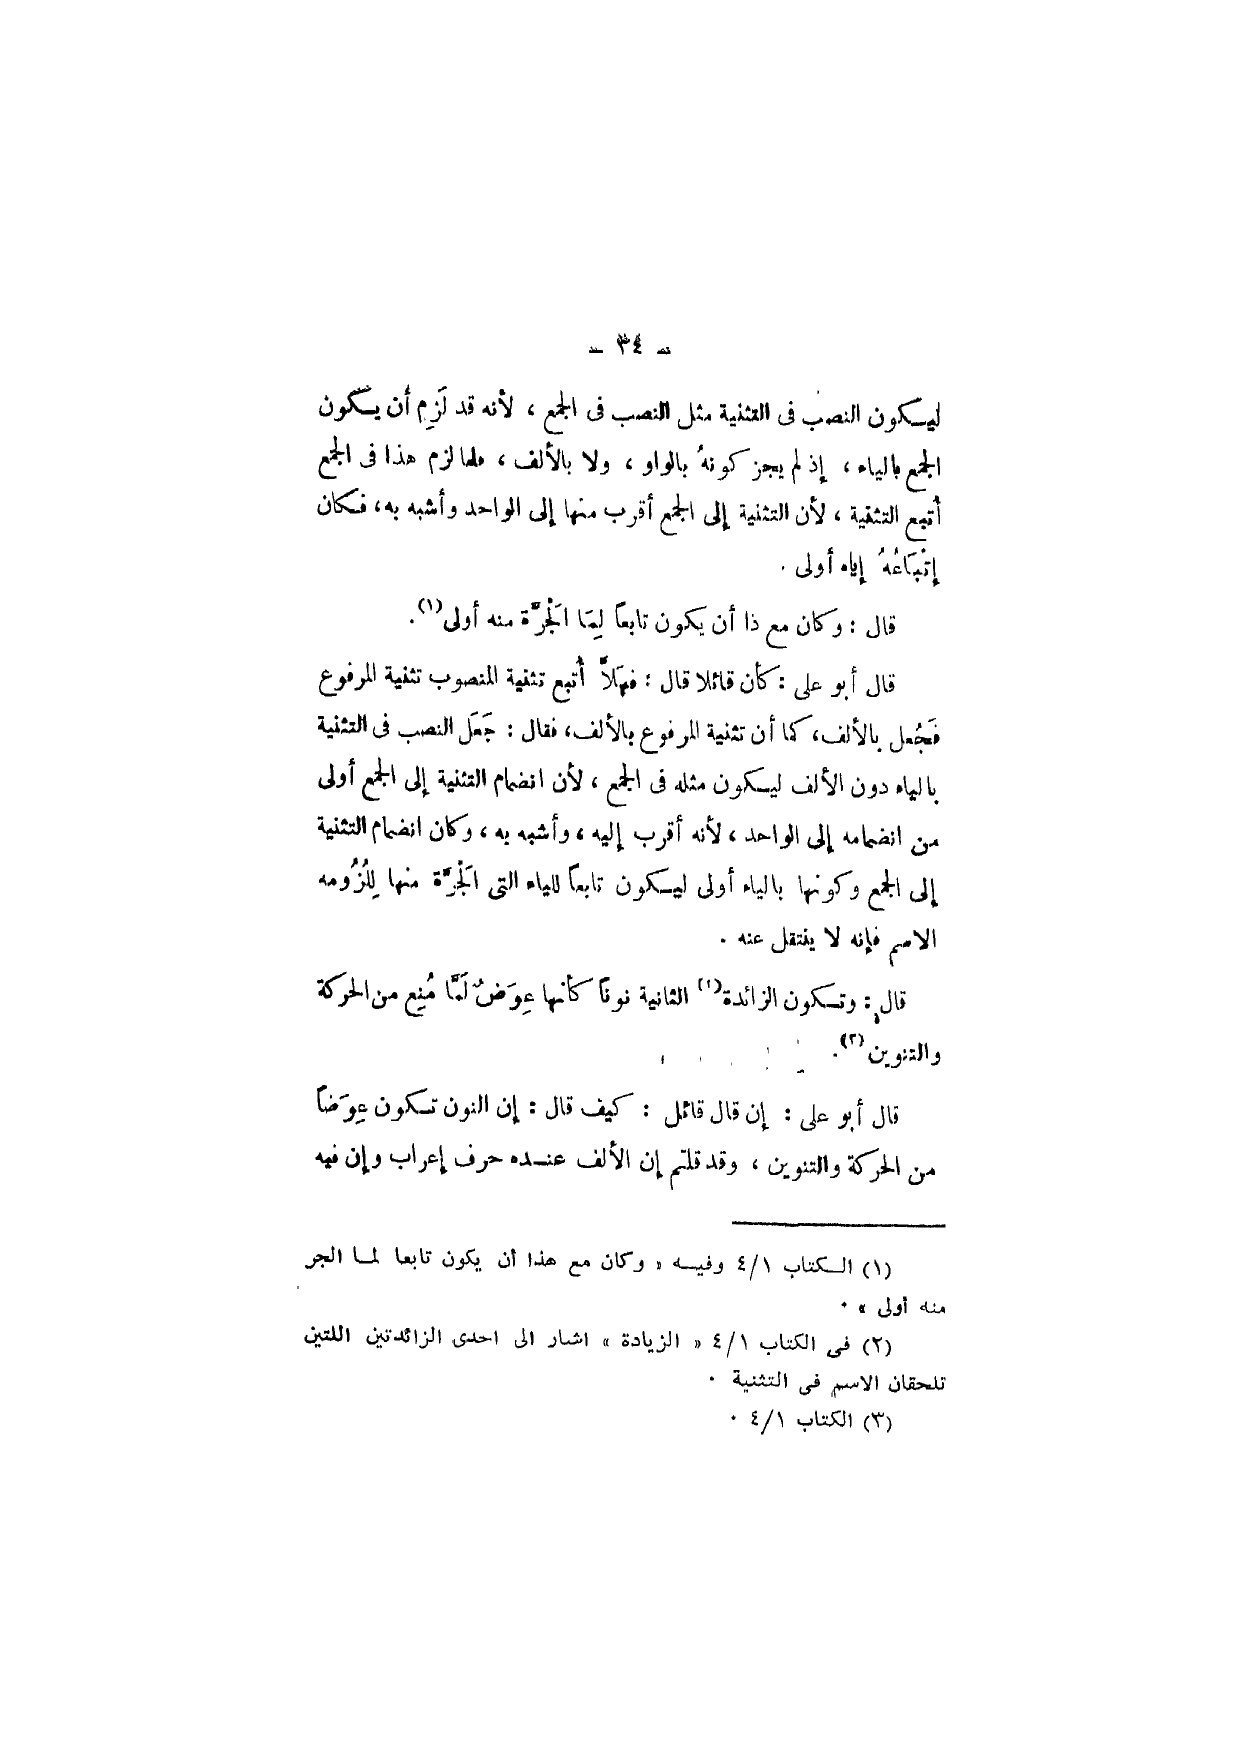 – ٣٤ –
ليكون النصب فى التثنية مثل النصب فى الجمع ، لأنه قد لَزِم أن يكون
الجمع بالياء ، إذ لم يجز كونهُ بالواو ، ولا بالألف ، فلما لزم هذا فى الجمع
أُتبع التثنية ، لأن التثنية إلى الجمع أقرب منها إلى الواحد وأشبه به، فكان
إِتْبَاعُهُ إياه أولى .
قال : وكان مع ذا أن يكون تابعاً لِمَا الْجَرَّة منه أولى(١).
قال أبو على : كأن قائلا قال : فهَلاَّ أُتبع تثنية المنصوب تثنية المرفوع
فَجُعل بالألف، كما أن تثنية المرفوع بالألف، فقال : جَعَل النصب فى التثنية
بالياء دون الألف ليكون مثله فى الجمع ، لأن انضمام التثنية إلى الجمع أولى
من انضمامه إلى الواحد ، لأنه أقرب إليه ، وأشبه به ، وكان انضمام التثنية
إلى الجمع وكونها بالياء أولى ليكون تابعاً للياء التى الْجَرَّة منها لِلُزُومه
الاسم فإنه لا ينتقل عنه .
قال : وتكون الزائدة(٢) الثانية نوناً كأنها عِوَضٌ لَمَّا مُنِع من الحركة
والتنوين(٣).
قال أبو على : إن قال قائل : كيف قال : إن النون تكون عِوَضاً
من الحركة والتنوين ، وقد قلتم إن الألف عنده حرف إعراب وإن فيه
(١) الكتاب ٤/١ وفيه « وكان مع هذا أن يكون تابعا لما الجر
منه أولى » .
(٢) فى الكتاب ٤/١ « الزيادة » اشار الى احدى الزائدتين اللتين
تلحقان الاسم فى التثنية .
(٣) الكتاب ٤/١ .